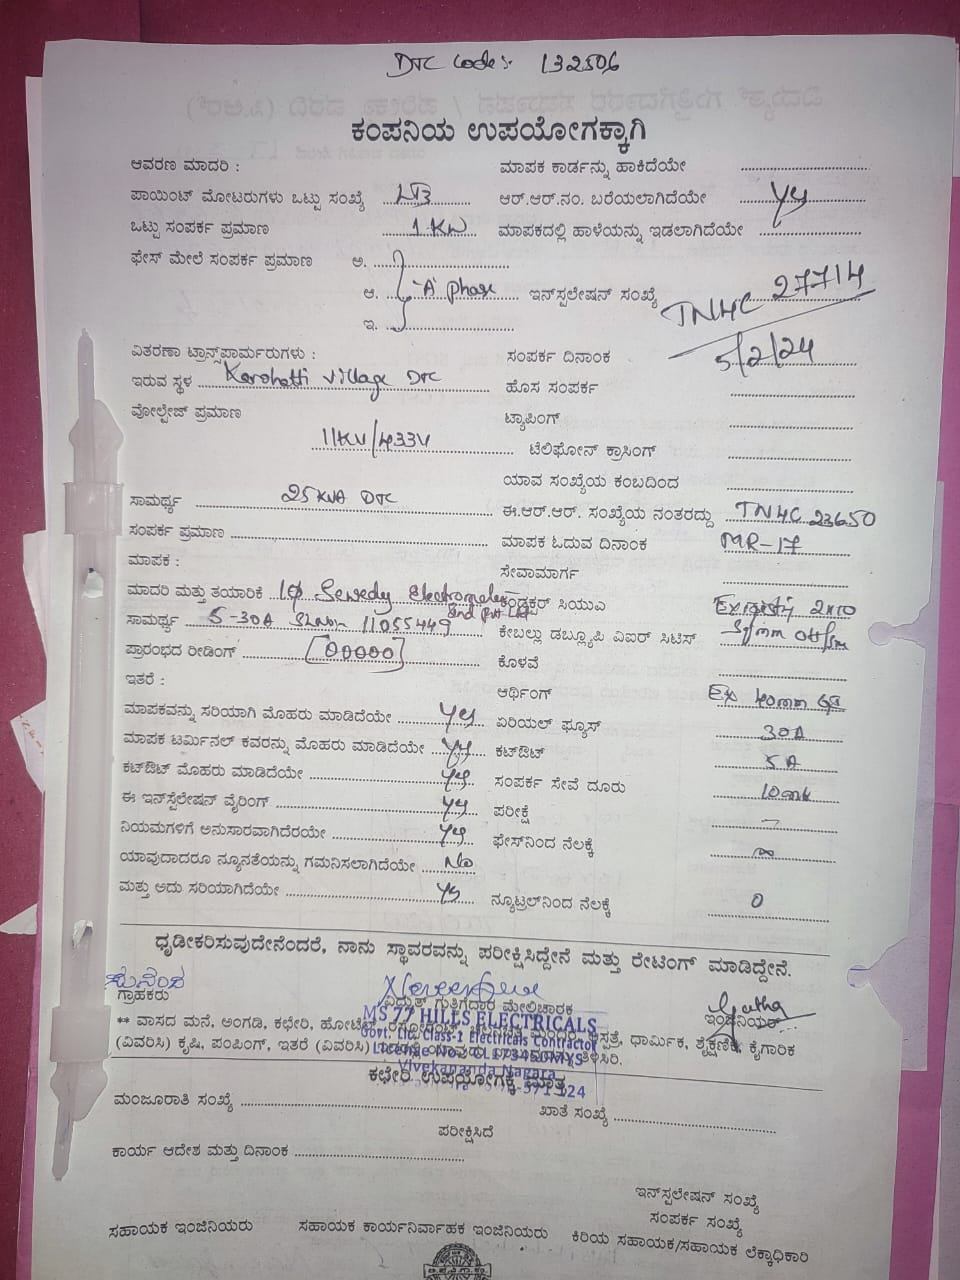 DTC Code:- 132506
ಕಂಪನಿಯ ಉಪಯೋಗಕ್ಕಾಗಿ
ಆವರಣ ಮಾದರಿ :
ಮಾಪಕ ಕಾರ್ಡನ್ನು ಹಾಕಿದೆಯೇ
ಪಾಯಿಂಟ್ ಮೋಟರುಗಳು ಒಟ್ಟು ಸಂಖ್ಯೆ LT3
ಆರ್.ಆರ್.ನಂ. ಬರೆಯಲಾಗಿದೆಯೇ yes
ಒಟ್ಟು ಸಂಪರ್ಕ ಪ್ರಮಾಣ 1 KW
ಮಾಪಕದಲ್ಲಿ ಹಾಳೆಯನ್ನು ಇಡಲಾಗಿದೆಯೇ
ಫೇಸ್ ಮೇಲೆ ಸಂಪರ್ಕ ಪ್ರಮಾಣ ಅ.
ಆ. -A phase ಇನ್‌ಸ್ಪಲೇಷನ್ ಸಂಖ್ಯೆ TNHC 27714
ಇ.
ವಿತರಣಾ ಟ್ರಾನ್ಸ್‌ಫಾರ್ಮರುಗಳು :
ಸಂಪರ್ಕ ದಿನಾಂಕ 5/2/24
ಇರುವ ಸ್ಥಳ Karohatti Village DTC
ಹೊಸ ಸಂಪರ್ಕ
ವೋಲ್ಟೇಜ್ ಪ್ರಮಾಣ 11KV/433V
ಟ್ಯಾಪಿಂಗ್
ಟೆಲಿಫೋನ್ ಕ್ರಾಸಿಂಗ್
ಯಾವ ಸಂಖ್ಯೆಯ ಕಂಬದಿಂದ
ಸಾಮರ್ಥ್ಯ 25 KVA DTC
ಈ.ಆರ್.ಆರ್. ಸಂಖ್ಯೆಯ ನಂತರದ್ದು TNHC 23650
ಸಂಪರ್ಕ ಪ್ರಮಾಣ
ಮಾಪಕ ಓದುವ ದಿನಾಂಕ MR-17
ಮಾಪಕ :
ಸೇವಾಮಾರ್ಗ
ಮಾದರಿ ಮತ್ತು ತಯಾರಿಕೆ 1Φ Electrometer Ind Pvt Ltd
ಕಂಡಕ್ಟರ್ ಸಿಯುವಿ
ಸಾಮರ್ಥ್ಯ 5-30A 11055449
ಕೇಬಲ್ಲು ಡಬ್ಲ್ಯೂಪಿ ವಿಐರ್ ಸಿಟಿಸ್
ಪ್ರಾರಂಭದ ರೀಡಿಂಗ್ [00000]
ಕೊಳವೆ
ಇತರೆ :
ಆರ್ಥಿಂಗ್
ಮಾಪಕವನ್ನು ಸರಿಯಾಗಿ ಮೊಹರು ಮಾಡಿದೆಯೇ yes
ಏರಿಯಲ್ ಫ್ಯೂಸ್ 30A
ಮಾಪಕ ಟರ್ಮಿನಲ್ ಕವರನ್ನು ಮೊಹರು ಮಾಡಿದೆಯೇ yes
ಕಟ್‌ಔಟ್ 5A
ಕಟ್‌ಔಟ್ ಮೊಹರು ಮಾಡಿದೆಯೇ yes
ಸಂಪರ್ಕ ಸೇವೆ ದೂರು
ಈ ಇನ್‌ಸ್ಪೆಲೇಷನ್ ವೈರಿಂಗ್ yes
ಪರೀಕ್ಷೆ -
ನಿಯಮಗಳಿಗೆ ಅನುಸಾರವಾಗಿದೆರಯೇ yes
ಫೇಸ್‌ನಿಂದ ನೆಲಕ್ಕೆ ∞
ಯಾವುದಾದರೂ ನ್ಯೂನತೆಯನ್ನು ಗಮನಿಸಲಾಗಿದೆಯೇ No
ಮತ್ತು ಅದು ಸರಿಯಾಗಿದೆಯೇ yes
ನ್ಯೂಟ್ರಲ್‌ನಿಂದ ನೆಲಕ್ಕೆ 0
ಧೃಡೀಕರಿಸುವುದೇನೆಂದರೆ, ನಾನು ಸ್ಥಾವರವನ್ನು ಪರೀಕ್ಷಿಸಿದ್ದೇನೆ ಮತ್ತು ರೇಟಿಂಗ್ ಮಾಡಿದ್ದೇನೆ.
ಗ್ರಾಹಕರು
ವಿದ್ಯುತ್ ಗುತ್ತಿಗೆದಾರ ಮೇಲಿಚಾರಕ
ಇಂಜಿನಿಯರ್
MS 77 HILLS ELECTRICALS
Govt. Lic. Class-1 Electricals Contractor
Vivekananda Nagara
** ವಾಸದ ಮನೆ, ಅಂಗಡಿ, ಕಛೇರಿ, ಹೋಟೆಲ್, ಧಾರ್ಮಿಕ, ಶೈಕ್ಷಣಿಕ, ಕೈಗಾರಿಕ
(ವಿವರಿಸಿ) ಕೃಷಿ, ಪಂಪಿಂಗ್, ಇತರೆ (ವಿವರಿಸಿ) ತಿಳಿಸಿರಿ.
ಕಛೇರಿ ಉಪಯೋಗಕ್ಕೆ ಮಾತ್ರ
ಮಂಜೂರಾತಿ ಸಂಖ್ಯೆ
ಖಾತೆ ಸಂಖ್ಯೆ
ಪರೀಕ್ಷಿಸಿದೆ
ಕಾರ್ಯ ಆದೇಶ ಮತ್ತು ದಿನಾಂಕ
ಇನ್‌ಸ್ಪಲೇಷನ್ ಸಂಖ್ಯೆ
ಸಂಪರ್ಕ ಸಂಖ್ಯೆ
ಸಹಾಯಕ ಇಂಜಿನಿಯರು
ಸಹಾಯಕ ಕಾರ್ಯನಿರ್ವಾಹಕ ಇಂಜಿನಿಯರು
ಕಿರಿಯ ಸಹಾಯಕ/ಸಹಾಯಕ ಲೆಕ್ಕಾಧಿಕಾರಿ